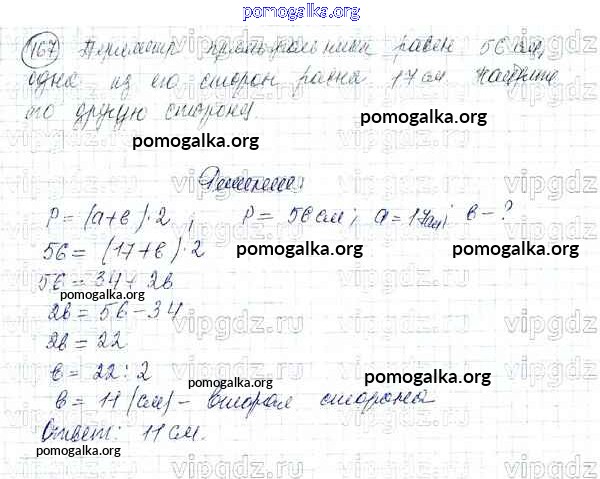 pomogalka.org
167 Периметр прямоугольника равен 56 см,
одна из его сторон равна 17 см. Найдите
его другую сторону.
pomogalka.org pomogalka.org
Решение:
P = (a+в)·2 ; P = 56 см; a = 17см; в - ?
56 = (17+в)·2
pomogalka.org pomogalka.org
56 = 34 + 2в
pomogalka.org
2в = 56 - 34
2в = 22
в = 22 : 2
pomogalka.org pomogalka.org
в = 11 (см) - вторая сторона
Ответ: 11 см.
pomogalka.org
vipgdz.ru